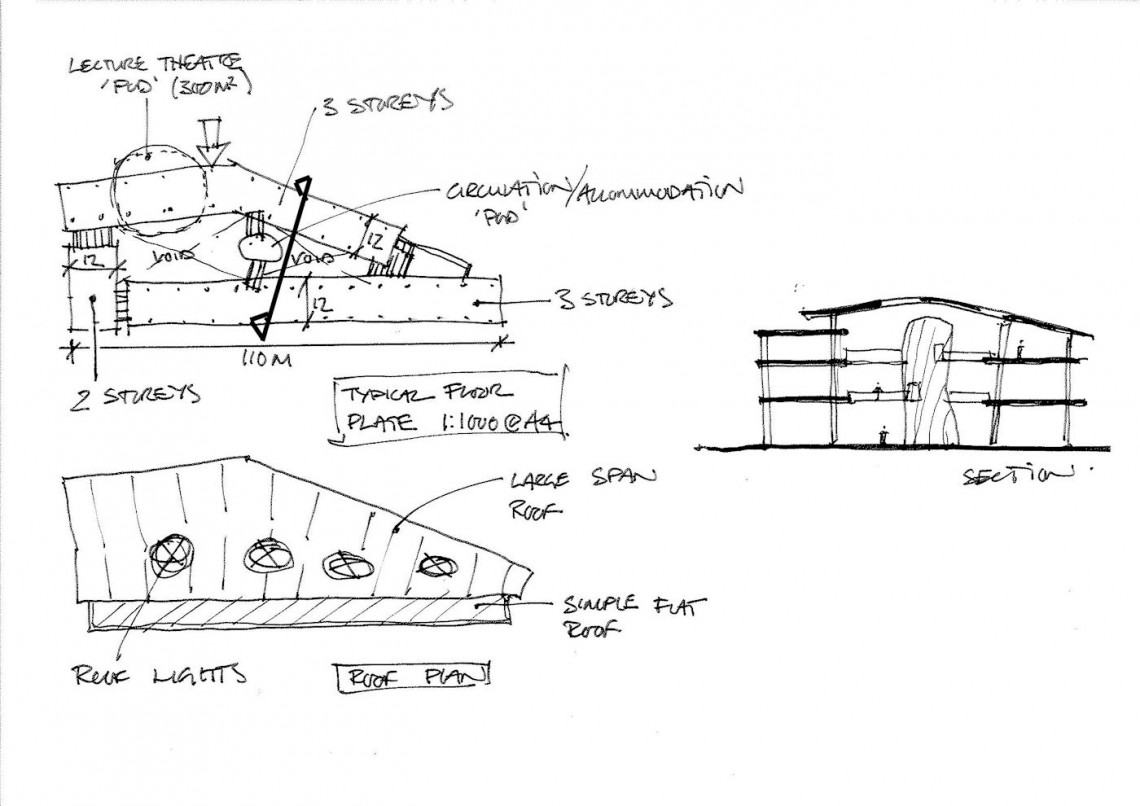 LECTURE THEATRE
'POD' (300M²)
3 STOREYS
CIRCULATION/ACCOMMODATION
'POD'
12
12
VOID
VOID
12
3 STOREYS
110M
2 STOREYS
TYPICAL FLOOR
PLATE 1:1000@A4
SECTION
LARGE SPAN
ROOF
SIMPLE FLAT
ROOF
ROOF LIGHTS
ROOF PLAN